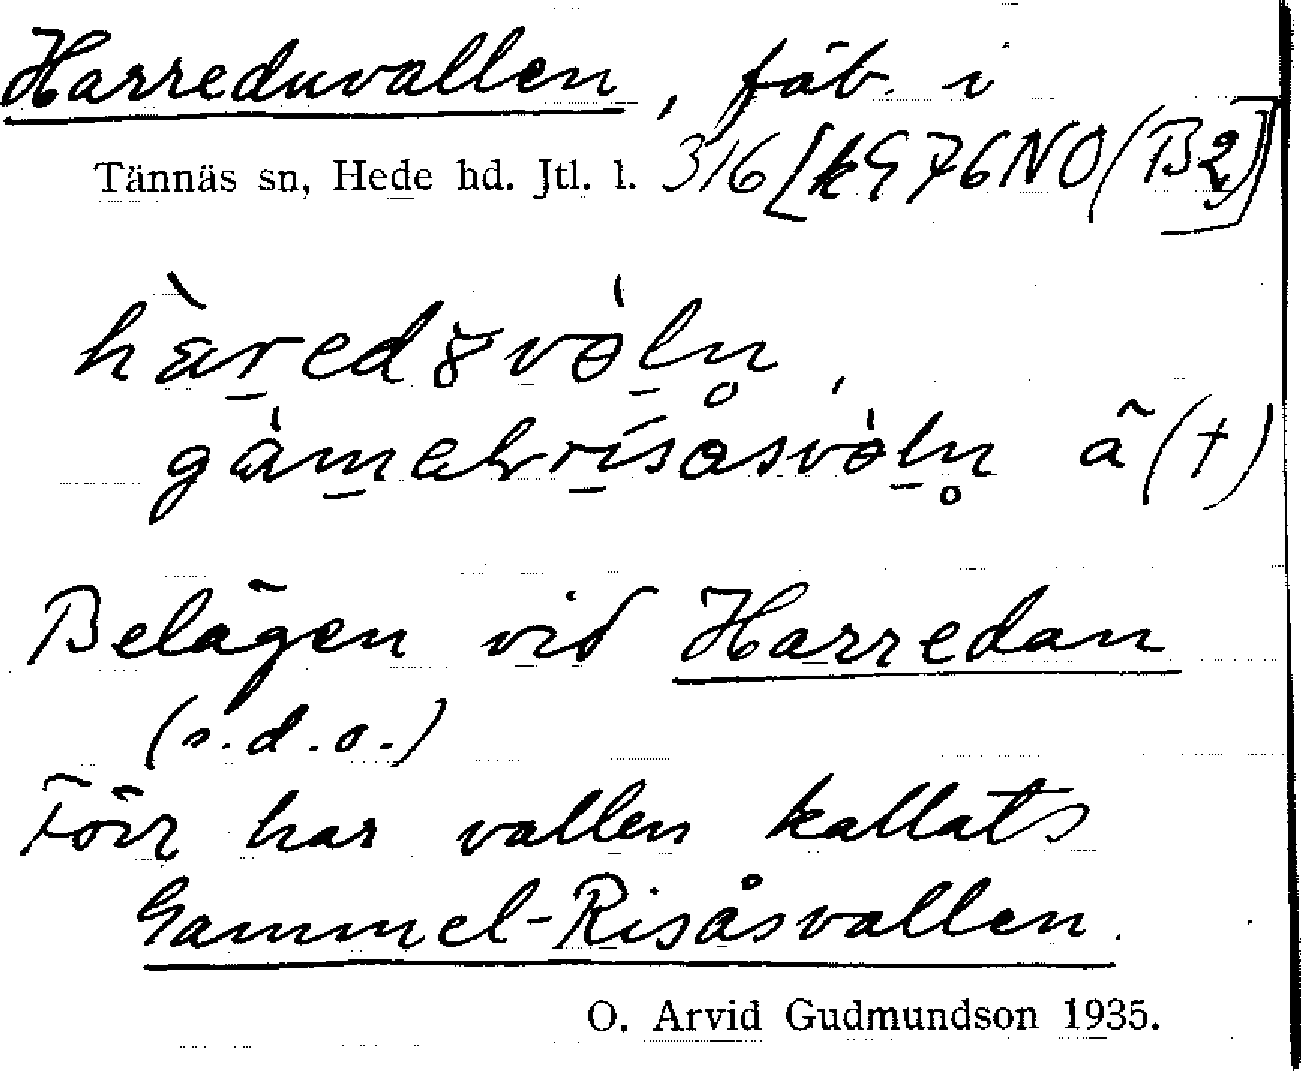 Harreduvallen, fäb. i
Tännäs sn, Hede hd. Jtl. l. 316 [k976NO(B2)]
gàmelrísåsvòln ã (†)
Belägen vid Harredan
(s.d.o.)
Förr har vallen kallats
Gammel-Risåsvallen.
O. Arvid Gudmundson 1935.